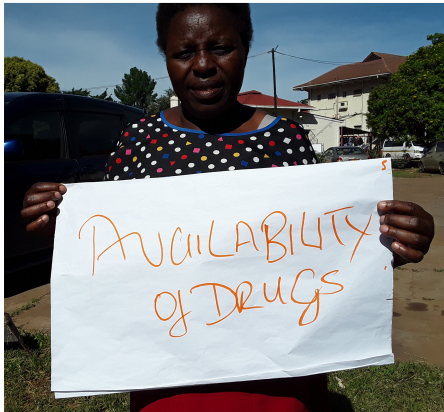 5
AVAILABILITY
of DRUGS